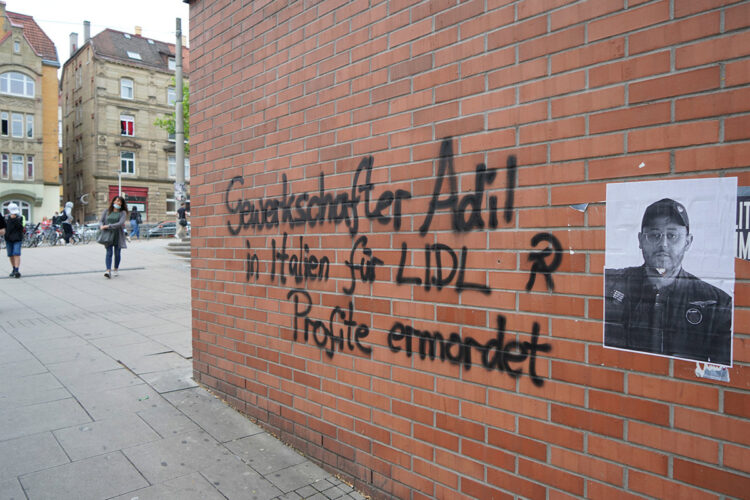 Gewerkschafter Adil
in Italien für LIDL
Profite ermordet